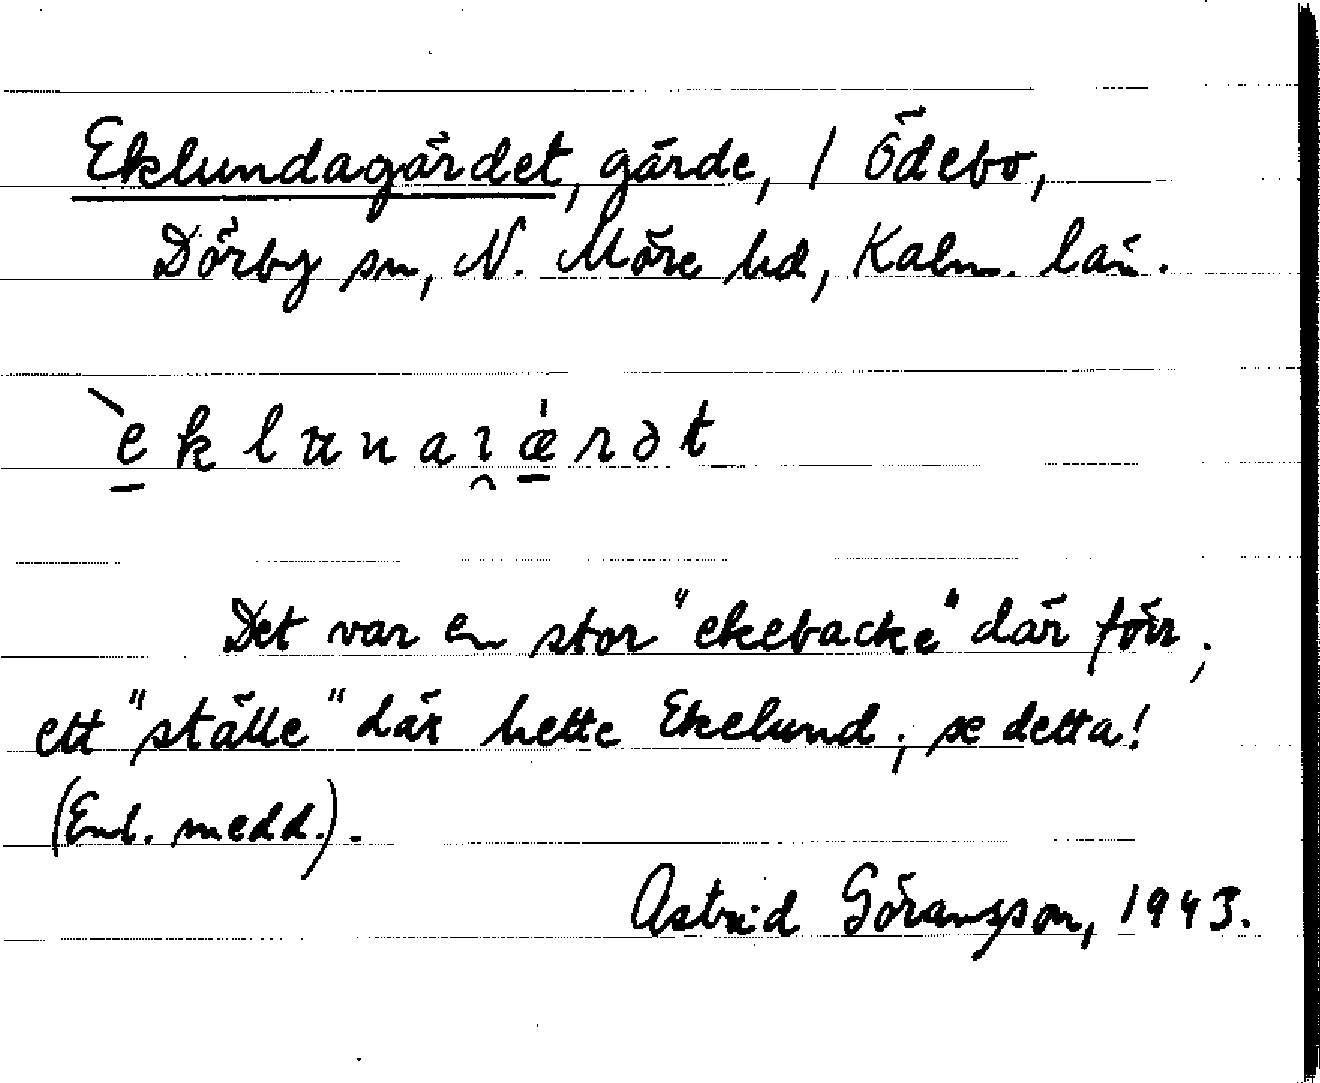 Eklundagärdet, gärde, 1 Ödebo,
Dörby sn, N. Möre hd, Kalm. län.
Det var en stor "ekebacke" där förr;
ett "ställe" där hette Ekelund; se detta!
(Enl. medd.).
Astrid Göransson, 1943.